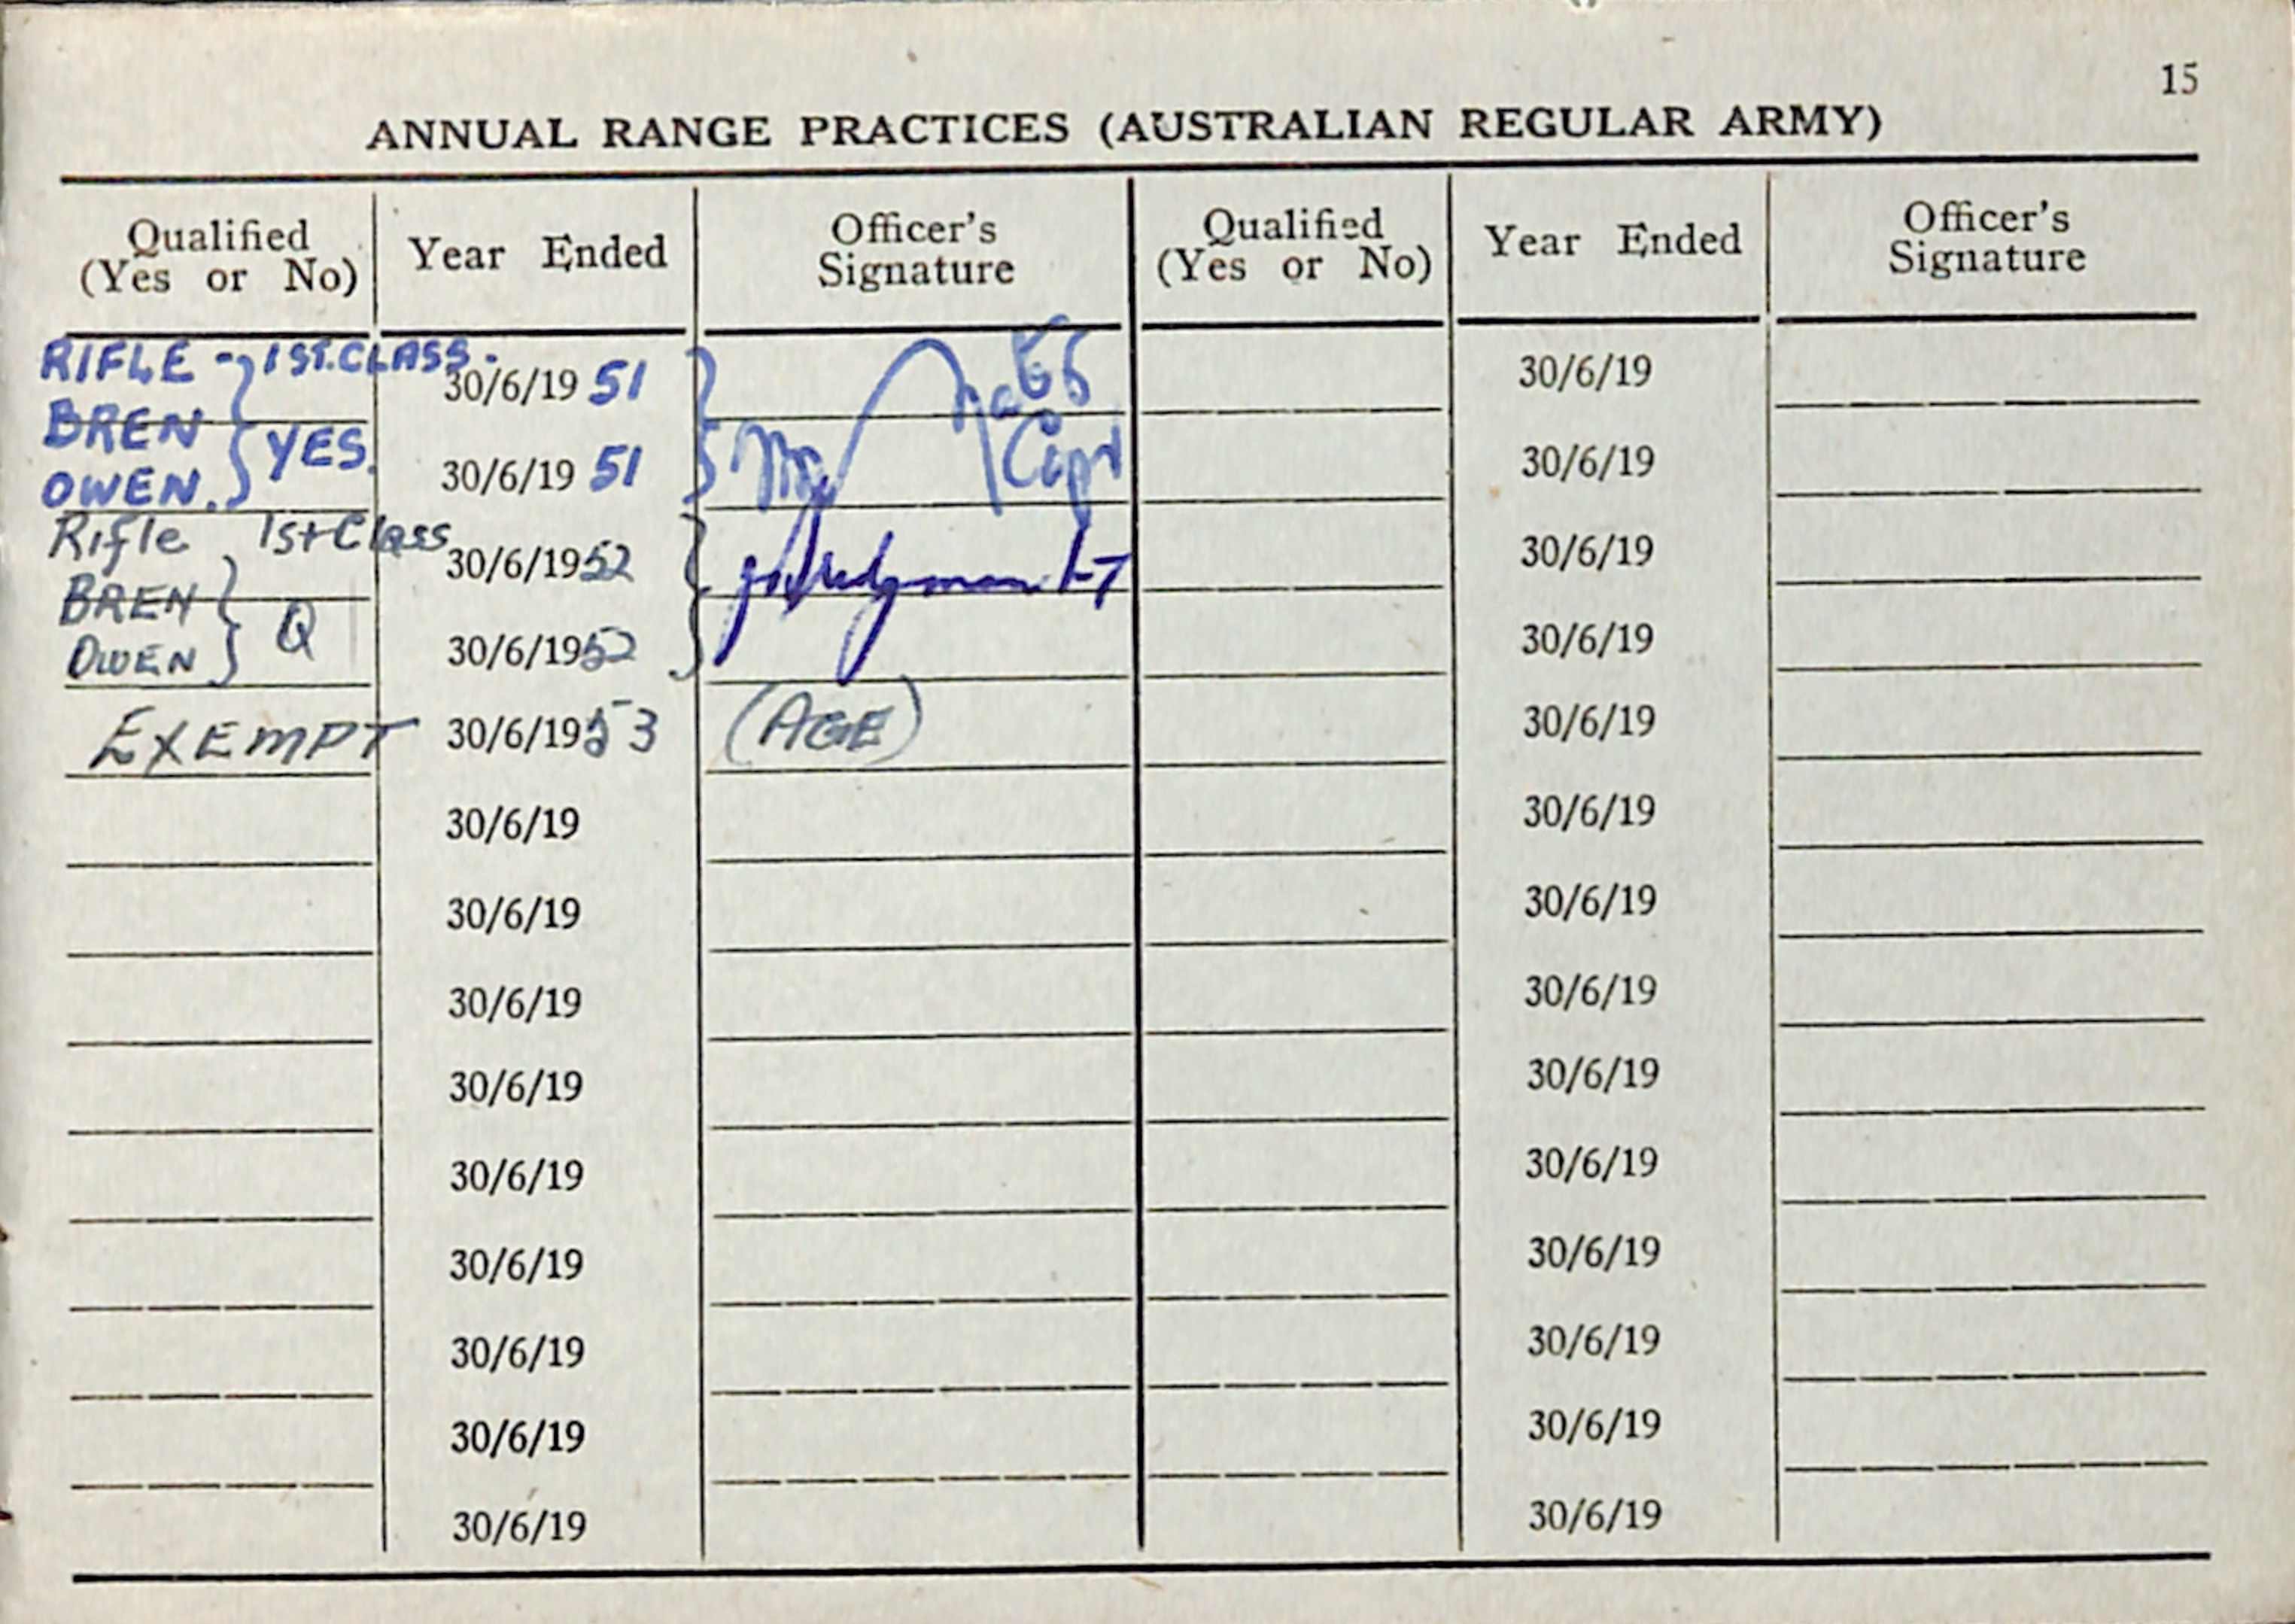 15
ANNUAL RANGE PRACTICES (AUSTRALIAN REGULAR ARMY)
Qualified (Yes or No) Year Ended Officer's Signature Qualified (Yes or No) Year Ended Officer's Signature
RIFLE - 1ST. CLASS. 30/6/19 51 30/6/19
BREN
OWEN. } YES. 30/6/19 51 Capt 30/6/19
Rifle 1st Class 30/6/19 52 30/6/19
BREN
OWEN } Q 30/6/19 52 30/6/19
EXEMPT 30/6/19 53 (AGE) 30/6/19
30/6/19 30/6/19
30/6/19 30/6/19
30/6/19 30/6/19
30/6/19 30/6/19
30/6/19 30/6/19
30/6/19 30/6/19
30/6/19 30/6/19
30/6/19 30/6/19
30/6/19 30/6/19